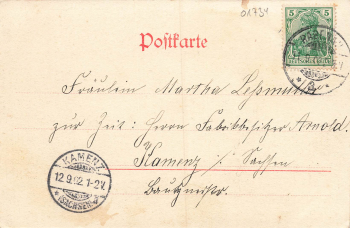 01734
5
Postkarte
Fräulein Martha Leßmüll
zur Zeit: Herrn Fabrikbesitzer Arnold
Kamenz i/ Sachsen
Bautznerstr.
KAMENZ
12.9.02 1-2V.
(SACHSEN)